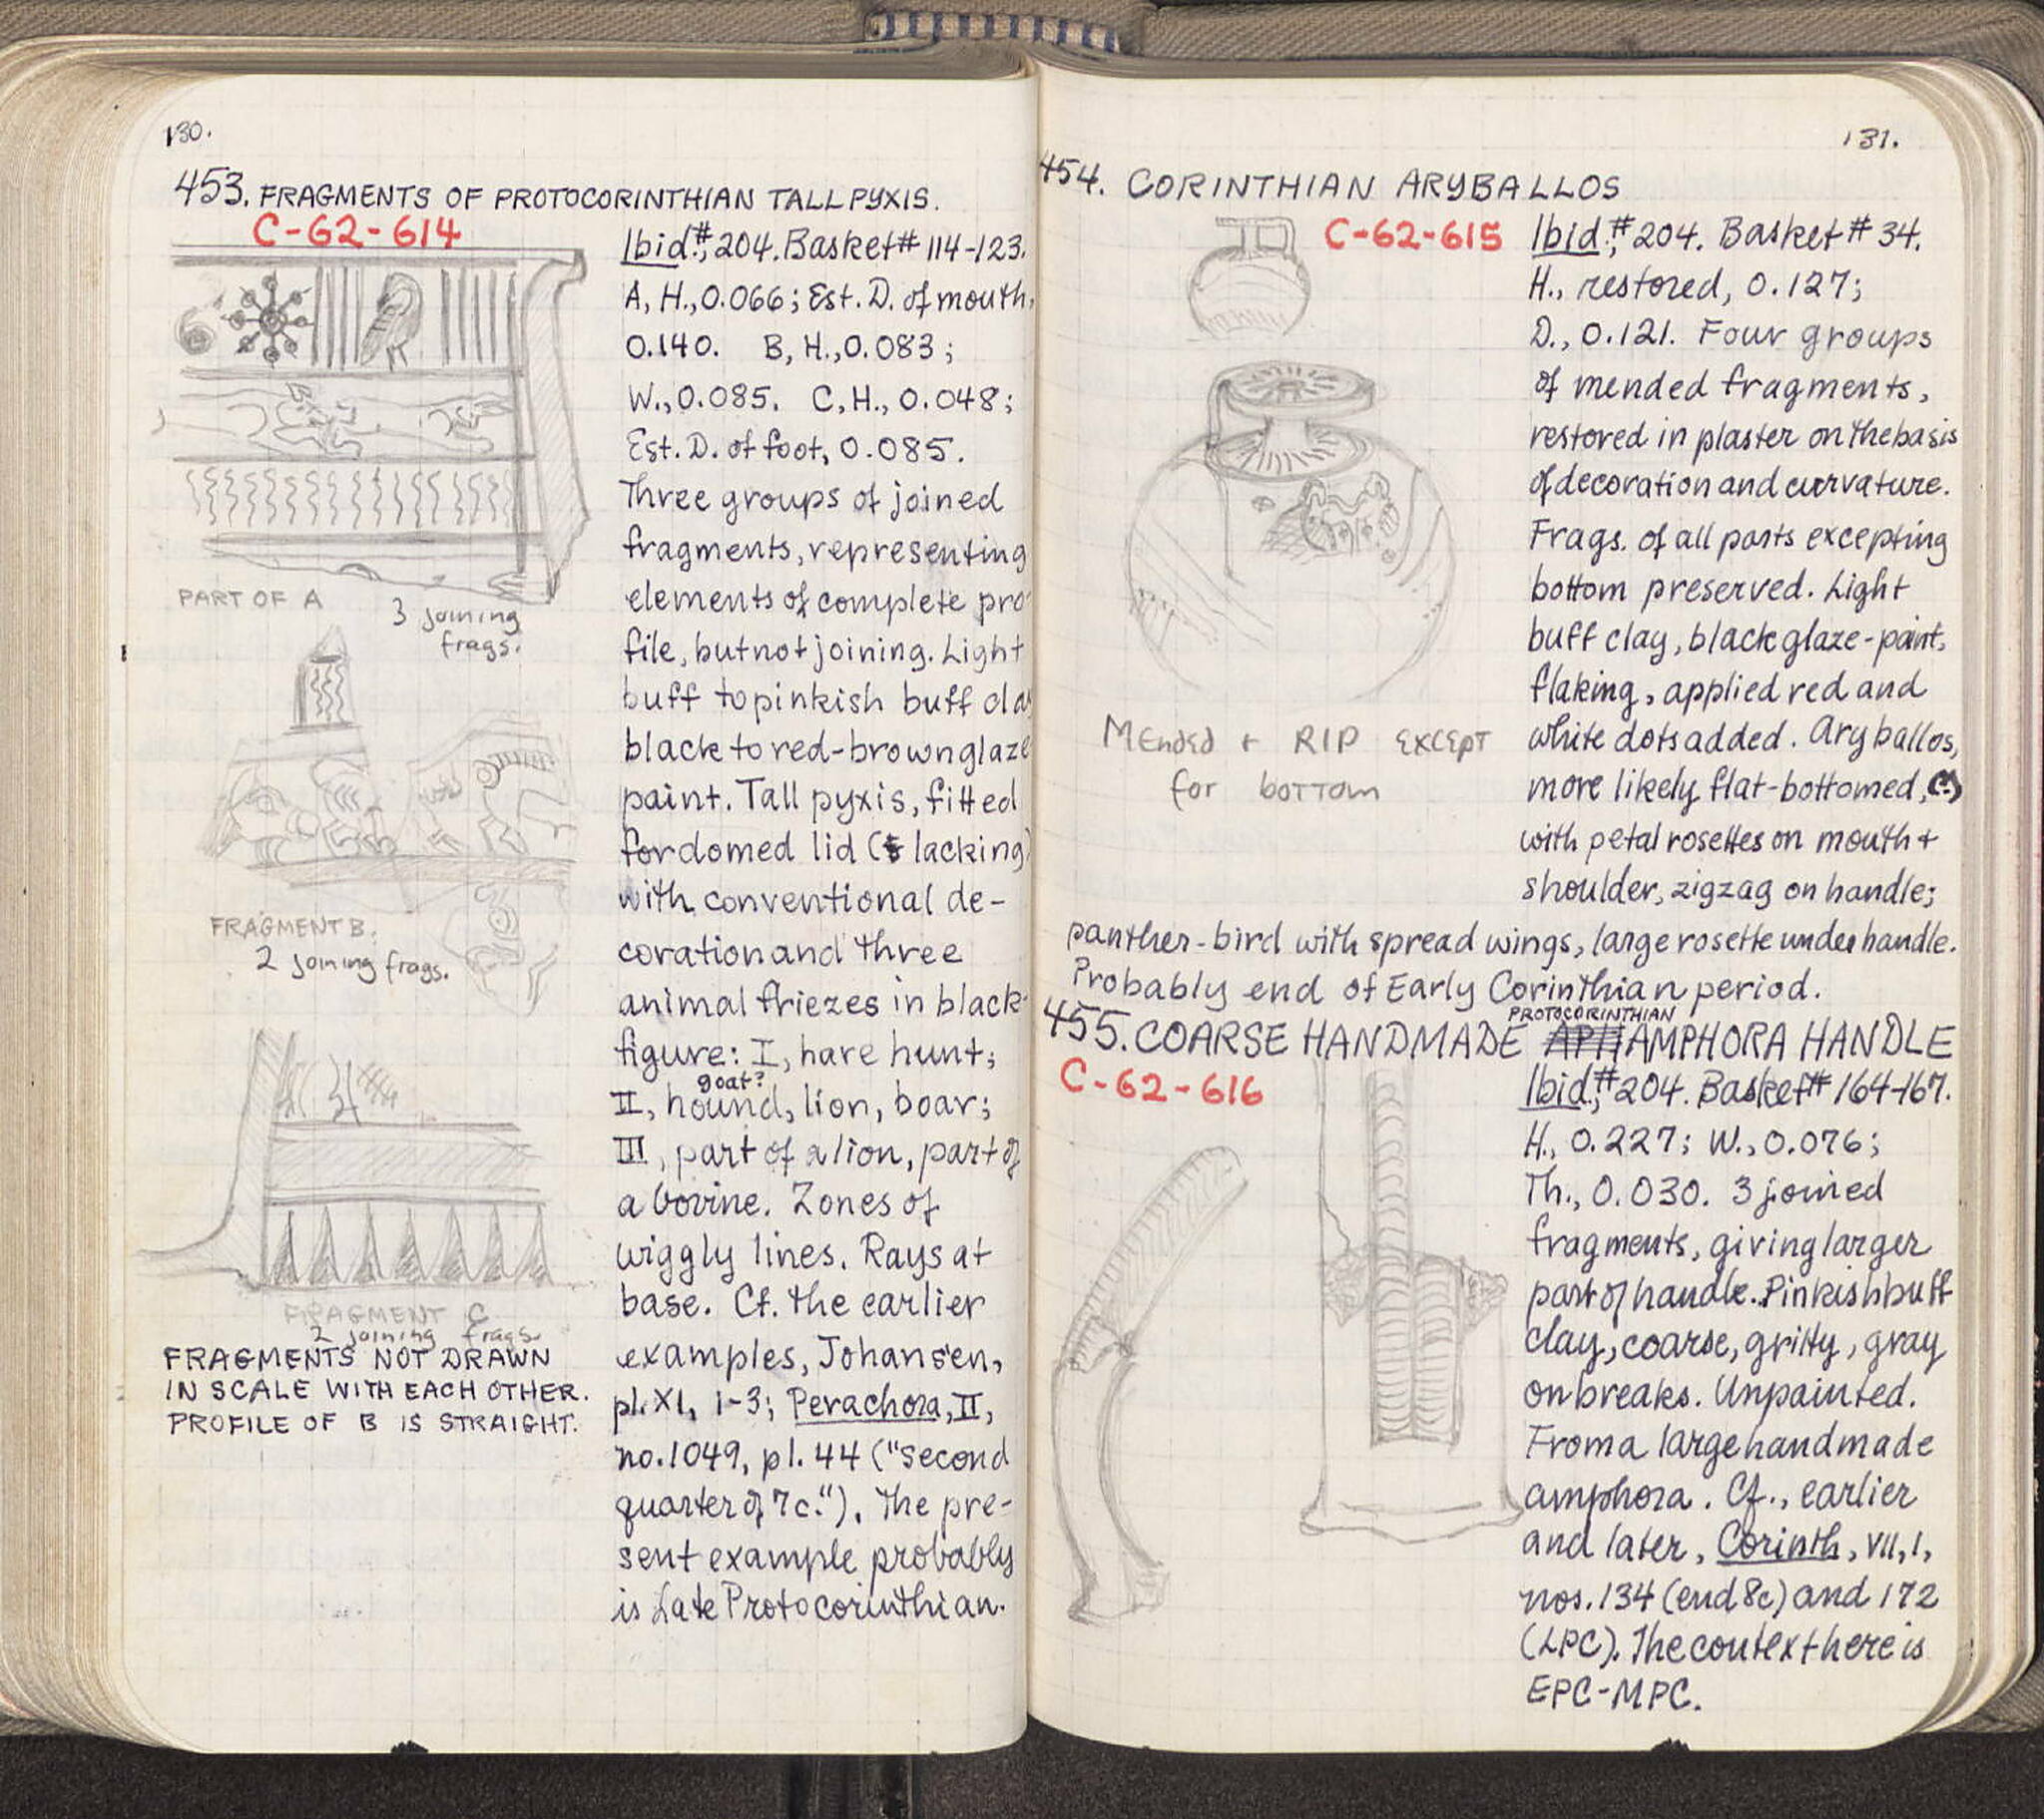 130.
453. FRAGMENTS OF PROTOCORINTHIAN TALL PYXIS.
C-62-614
Ibid., #204. Basket# 114-123.
A, H., 0.066; Est. D. of mouth,
0.140. B, H., 0.083;
W., 0.085. C, H., 0.048;
Est. D. of foot, 0.085.
Three groups of joined
fragments, representing
elements of complete pro-
file, but not joining. Light
buff to pinkish buff clay
black to red-brown glaze
paint. Tall pyxis, fitted
for domed lid (lacking)
with conventional de-
coration and three
animal friezes in black-
figure: I, hare hunt;
goat?
II, hound, lion, boar;
III, part of a lion, part of
a bovine. Zones of
wiggly lines. Rays at
base. Cf. the earlier
examples, Johansen,
pl. XI, 1-3; Perachora, II,
no. 1049, pl. 44 ("second
quarter of 7c."). The pre-
sent example probably
is Late Protocorinthian.
PART OF A
3 joining
frags.
FRAGMENT B.
2 joining frags.
FRAGMENT C
2 joining frags.
FRAGMENTS NOT DRAWN
IN SCALE WITH EACH OTHER.
PROFILE OF B IS STRAIGHT.
131.
454. CORINTHIAN ARYBALLOS
C-62-615
Ibid., #204. Basket # 34.
H., restored, 0.127;
D., 0.121. Four groups
of mended fragments,
restored in plaster on the basis
of decoration and curvature.
Frags. of all parts excepting
bottom preserved. Light
buff clay, black glaze-paint,
flaking, applied red and
white dots added. Aryballos,
more likely flat-bottomed, (?)
with petal rosettes on mouth +
shoulder, zigzag on handle;
panther-bird with spread wings, large rosette under handle.
Probably end of Early Corinthian period.
Mended + RIP EXCEPT
for bottom
PROTOCORINTHIAN
455. COARSE HANDMADE AMPHORA HANDLE
C-62-616
Ibid., #204. Basket# 164-167.
H., 0.227; W., 0.076;
Th., 0.030. 3 joined
fragments, giving larger
part of handle. Pinkish buff
clay, coarse, gritty, gray
on breaks. Unpainted.
From a large handmade
amphora. Cf., earlier
and later, Corinth, VII, I,
nos. 134 (end 8c) and 172
(LPC). The context here is
EPC-MPC.